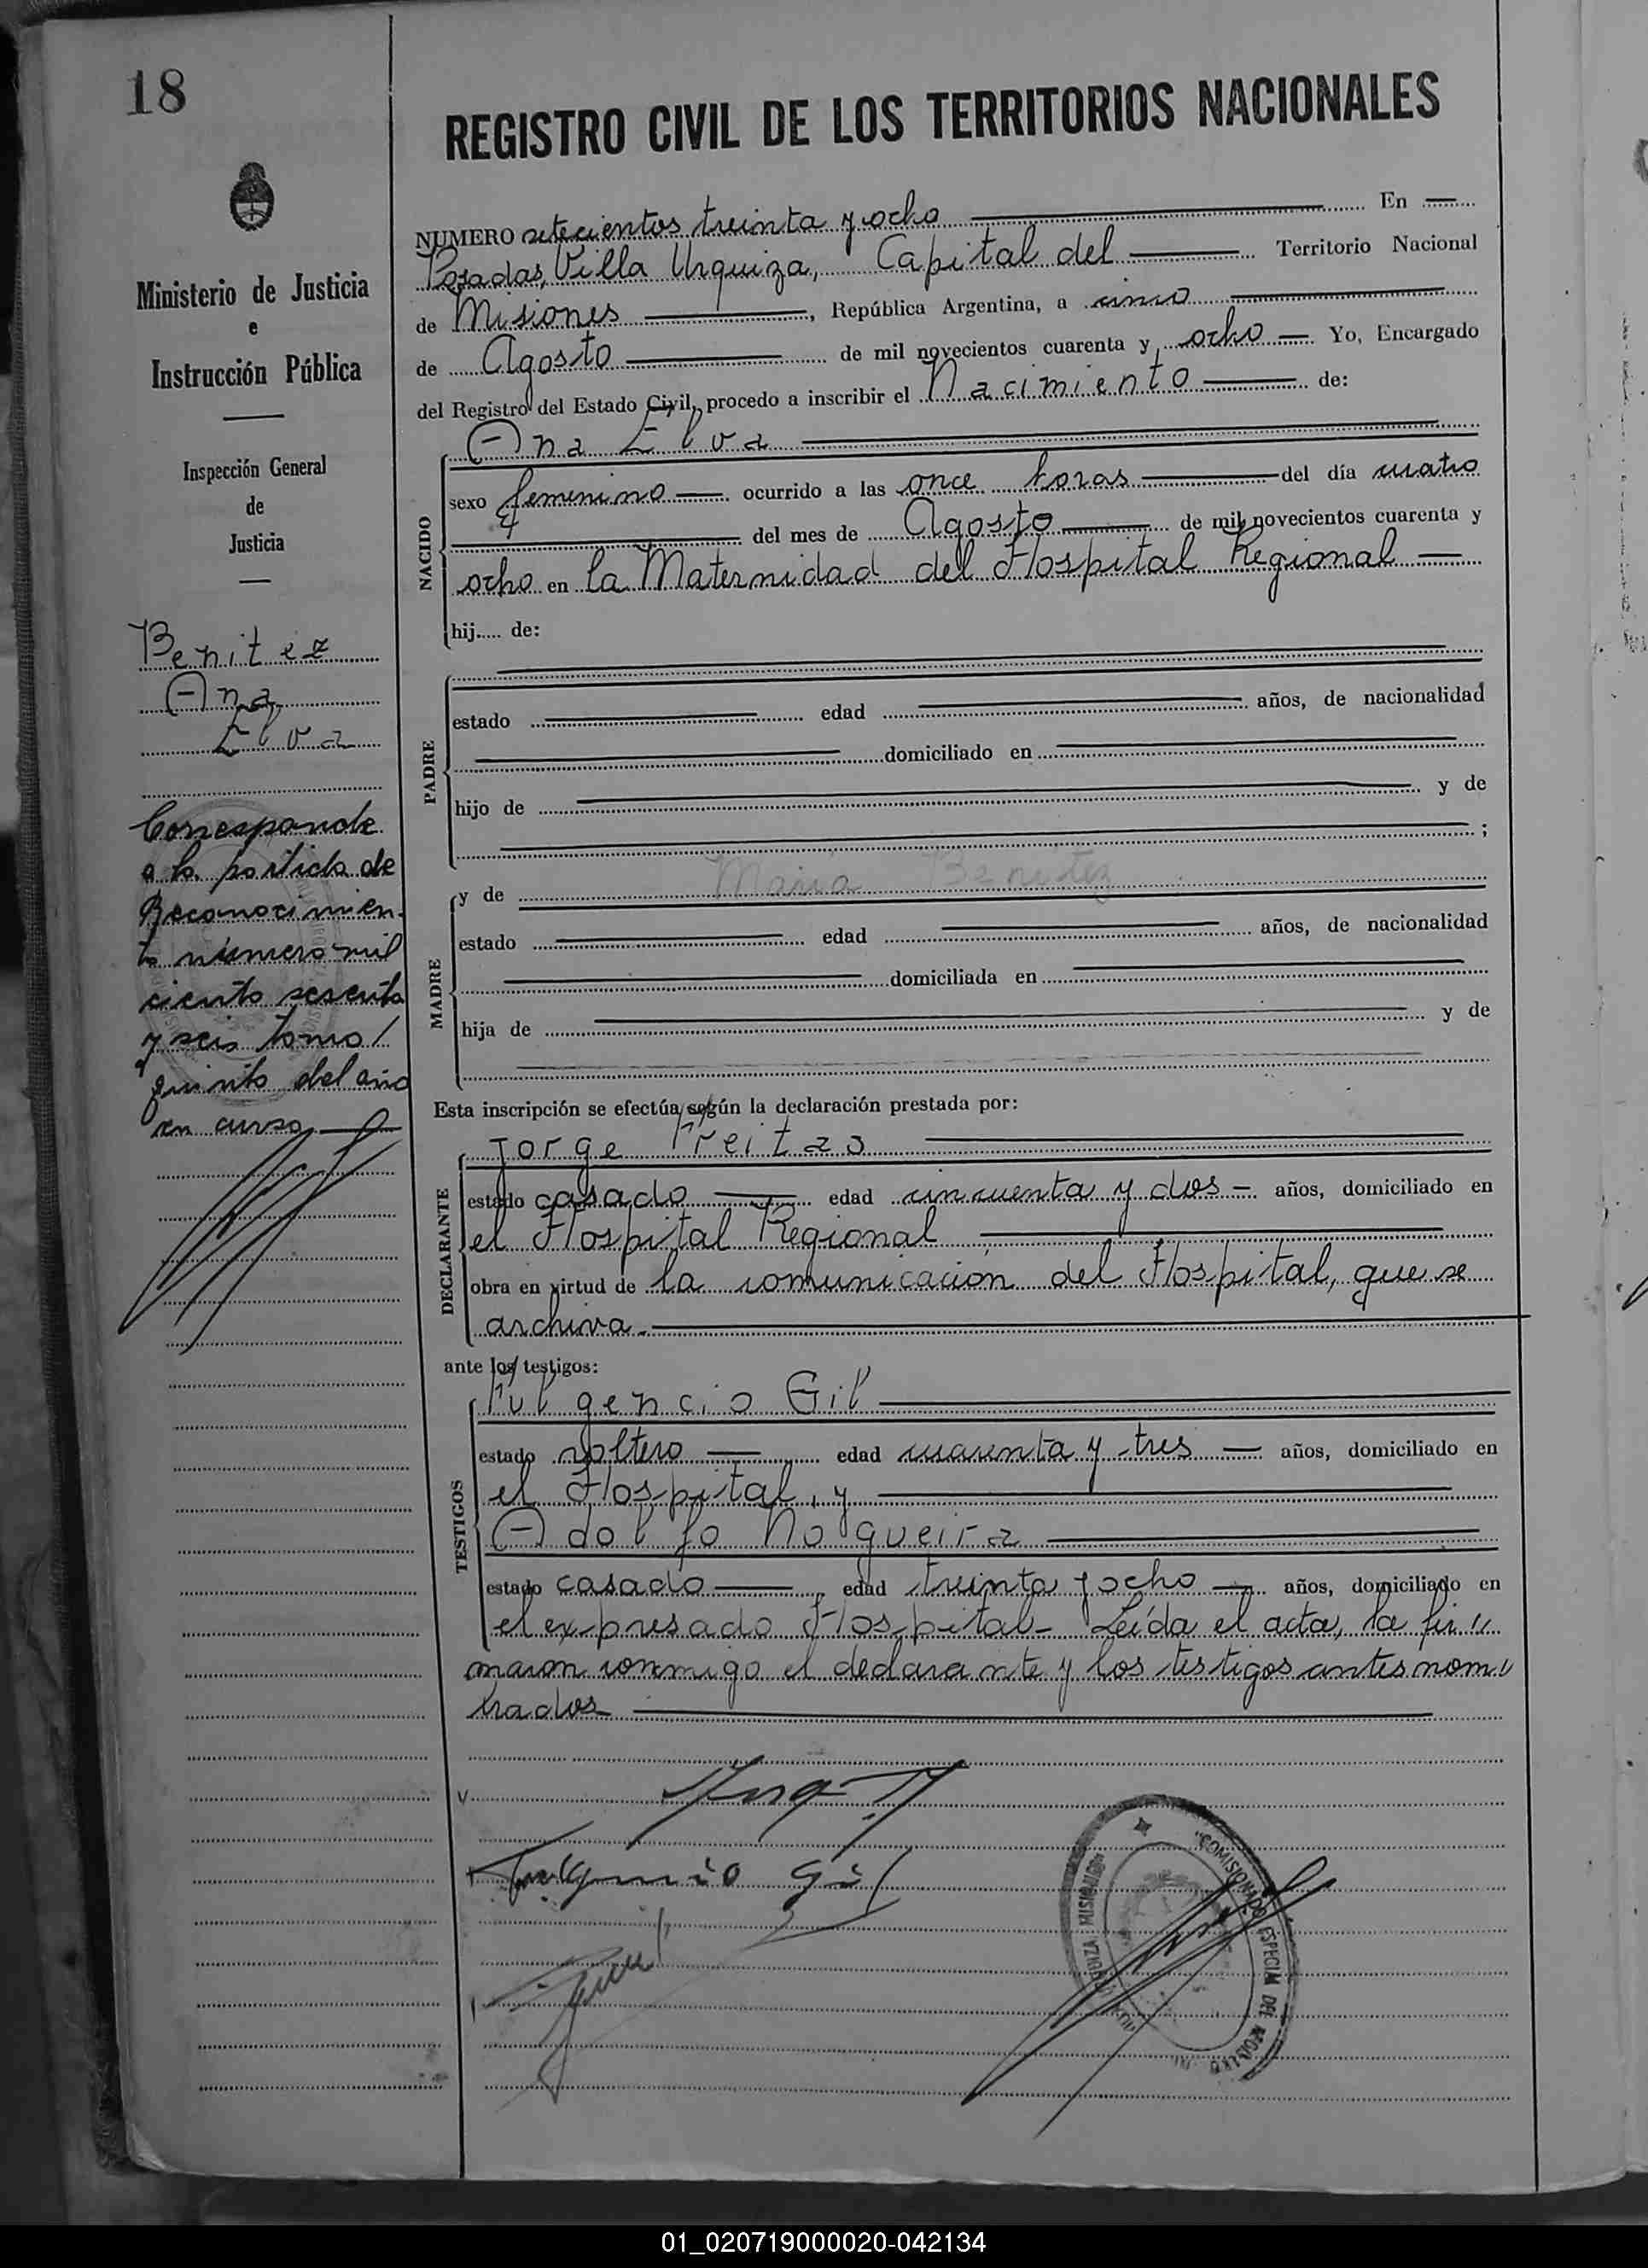 18
REGISTRO CIVIL DE LOS TERRITORIOS NACIONALES
Ministerio de Justicia
e
Instrucción Pública
Inspección General
de
Justicia
Benitez
Ana
Elva
Corresponde
a la partida de
Reconocimien-
to número mil
ciento sesenta
y seis tomo /
quinto del año
en curso
NUMERO setecientos treinta y ocho En
Posadas, Villa Urquiza, Capital del Territorio Nacional
de Misiones, República Argentina, a cinco
de Agosto de mil novecientos cuarenta y ocho Yo, Encargado
del Registro del Estado Civil, procedo a inscribir el Nacimiento de:
Ana Elva
NACIDO
sexo femenino ocurrido a las once horas del día cuatro
del mes de Agosto de mil novecientos cuarenta y
ocho en la Maternidad del Hospital Regional
hij..... de:
PADRE
estado edad años, de nacionalidad
domiciliado en
hijo de y de
;
MADRE
y de Maria Benitez
estado edad años, de nacionalidad
domiciliada en
hija de y de
Esta inscripción se efectúa según la declaración prestada por:
DECLARANTE
Jorge Freitas
estado casado edad cincuenta y dos años, domiciliado en
el Hospital Regional
obra en virtud de la comunicación del Hospital, que se
archiva.
ante los testigos:
TESTIGOS
Fulgencio Gil
estado soltero edad cuarenta y tres años, domiciliado en
el Hospital, y
Adolfo Nogueira
estado casado edad treinta y ocho años, domiciliado en
el expresado Hospital- Leída el acta, la fir"
maron conmigo el declarante y los testigos antes nom"
brados
Fulgencio Gil
COMISIONADO ESPECIAL DEL REGISTRO
URQUIZA MISIONES
01_020719000020-042134